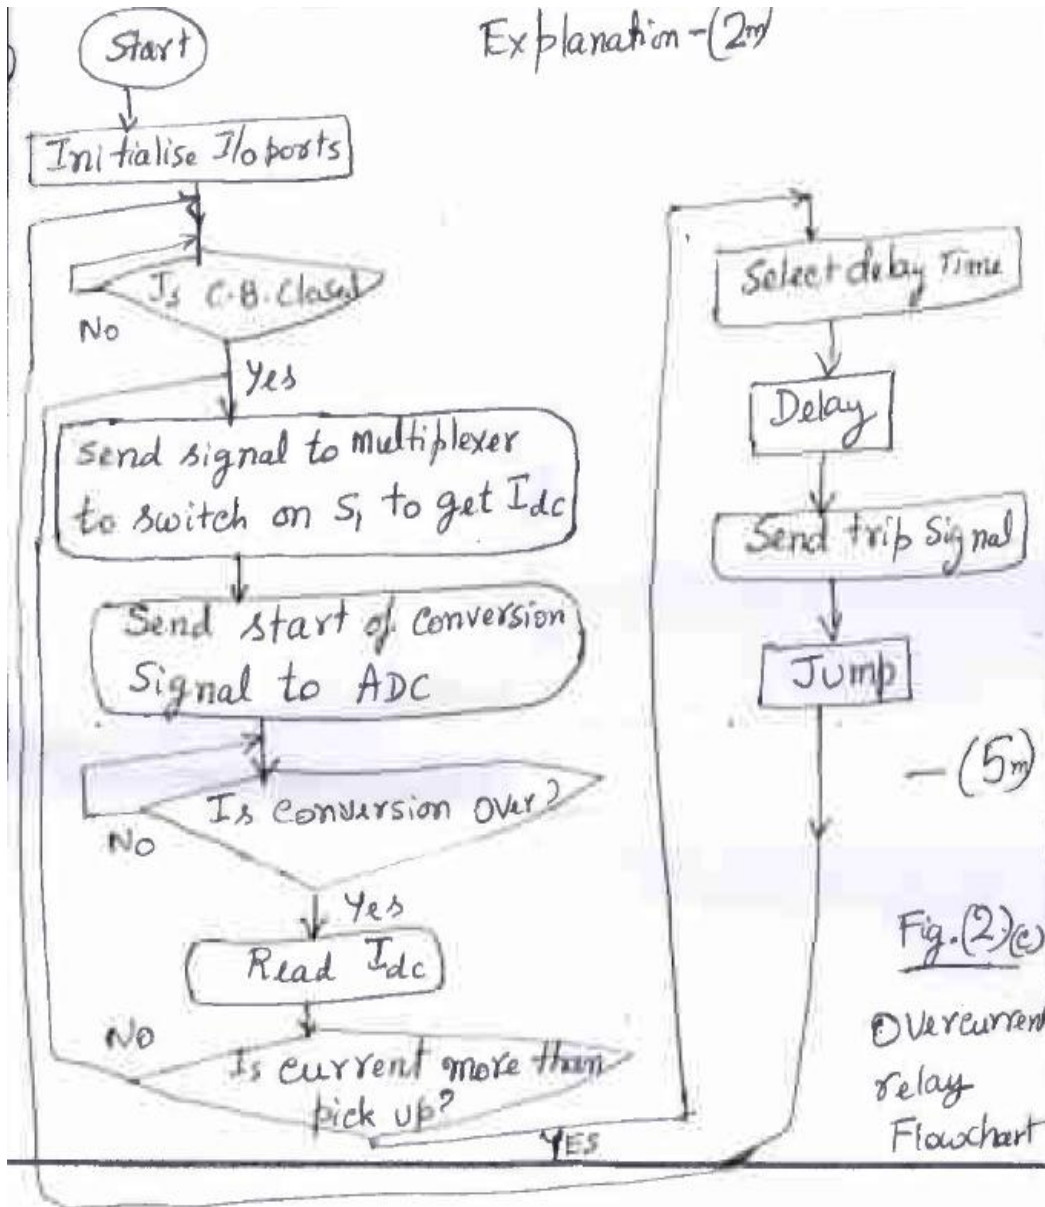 Start
Explanation-(2m)
Initialise I/o ports
Is C.B. Closed
No
Yes
Send signal to multiplexer
to switch on S₁ to get Idc
Send start of conversion
Signal to ADC
Is conversion over?
No
Yes
Read Idc
No
Is current more than
pick up?
YES
Select delay Time
Delay
Send trip Signal
Jump
— (5m)
Fig.(2)(c)
Overcurrent
relay
Flowchart